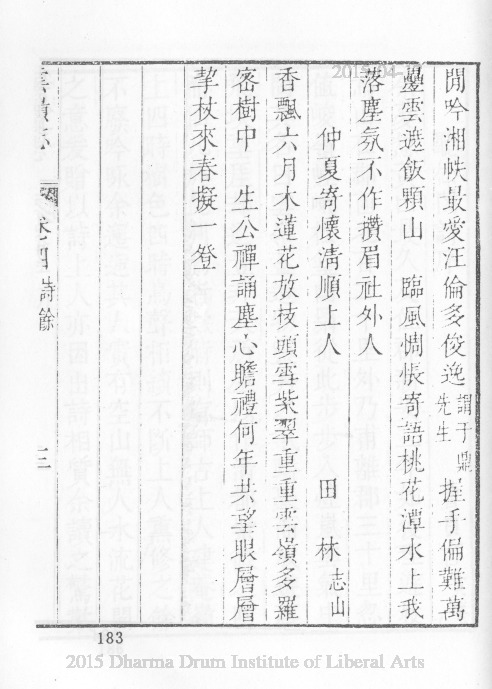 閒吟湘帙最愛汪倫多俊逸謂于鼎先生握手偏難萬
疊雲遮飯顆山　臨風惆悵寄語桃花潭水上我
落塵氛不作攢眉社外人
仲夏寄懷淸順上人　田　林志山
香飄六月木蓮花放枝頭雪紫翠重重雲嶺多羅
密樹中　生公禪誦塵心瞻禮何年共望眼層層
挐杖來春擬一登
志　卷四　詩餘　三
183
2015 Dharma Drum Institute of Liberal Arts